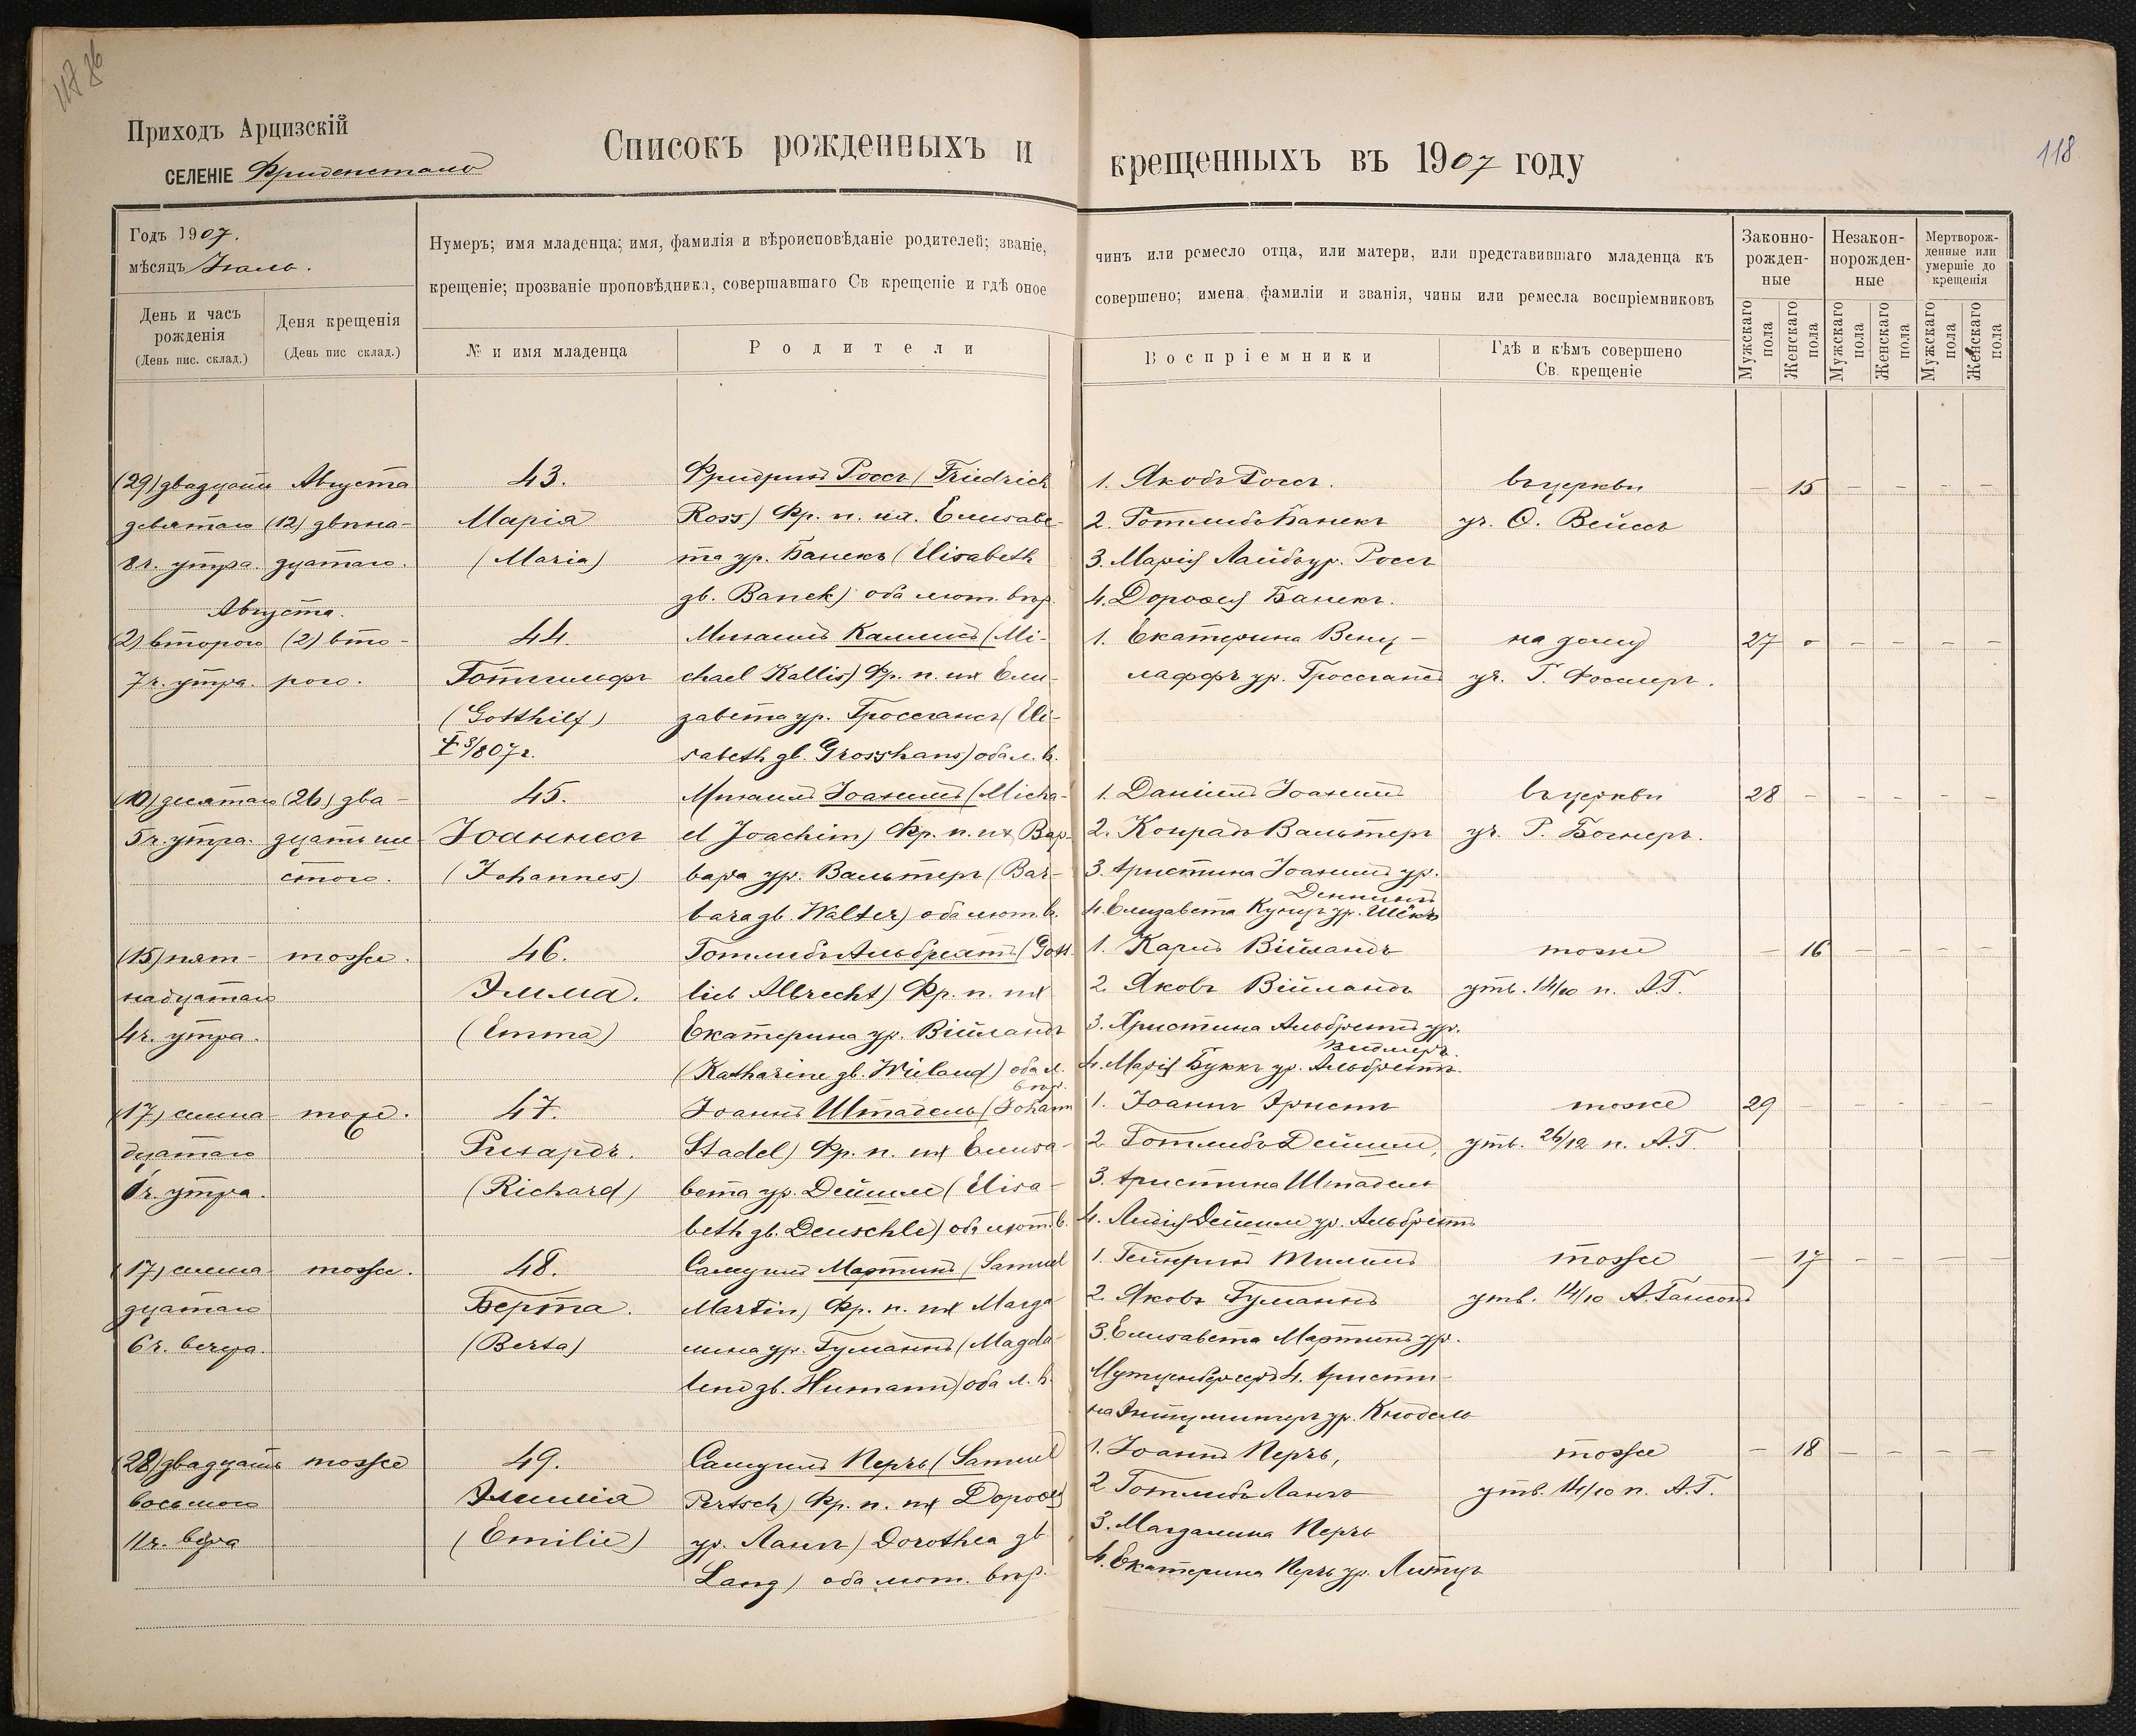 118
Приходъ Арцизскій
СЕЛЕНІЕ Фриденсталь
Списокъ рожденныхъ и крещенныхъ въ 1907 году
Годъ 1907.
мѣсяцъ Іюль.
День и часъ
рожденія
(День пис. склад.)
Деня крещенія
(День пис склад.)
Нумеръ; имя младенца; имя, фамилія и вѣроисповѣданіе родителей; званіе,
крещеніе; прозваніе проповѣдника, совершавшаго Св крещеніе и гдѣ оное
№ и имя младенца
Родители
чинъ или ремесло отца, или матери, или представившаго младенца къ
совершено; имена, фамиліи и званія, чины или ремесла воспріемниковъ
Воспріемники
Гдѣ и кѣмъ совершено
Св. крещеніе
Законно-
рожден-
ные
Незакон-
норожден-
ные
Мертворож-
денные или
умершіе до
крещенія
Мужскаго пола
Женскаго пола
Мужскаго пола
Женскаго пола
Мужскаго пола
Женскаго пола
(29) двадцать
девятаго
8 ч. утра.
Августа
(12) двѣна-
дцатаго.
43.
Марія
(Maria)
Фридрихъ Россъ (Friedrich
Ross) Фр. п. их. Елисабе-
та ур. Банекъ (Elisabeth
gb. Banek) оба лют. вѣр.
1. Якобъ Россъ.
2. Готлибъ Банекъ
3. Марія Лайбъ ур. Россъ
4. Дорофея Банекъ.
въ церкви
уч. О. Вейссъ
– 15 – – – –
Августа.
(2) второго
7 ч. утра.
(2) вто-
рого.
44.
Готтгильфъ
(Gotthilf)
3/807 г.
Михаилъ Каллисъ (Mi-
chael Kallis) Фр. п. их Ели-
завета ур. Гроссгансъ (Eli-
sabeth gb. Grosshans) оба л. в.
1. Екатерина Венц-
лаффъ ур. Гроссгансъ
на дому
уч. Г. Фосслеръ.
27 – – – – –
(10) десятаго
5 ч. утра.
(26) два-
дцать ше-
стого.
45.
Іоаннесъ
(Johannes)
Михаилъ Іоахимъ (Micha-
el Joachim) Фр. п. их Вар-
вара ур. Вальтеръ (Bar-
bara gb. Walter) оба лют. в.
1. Даніилъ Іоахимъ
2. Конрадъ Вальтеръ
3. Христина Іоахимъ ур.
4. Елизавета Кунцъ ур. Шёкъ
въ церкви
уч. Г. Богнеръ.
28 – – – – –
(15) пят-
надцатаго
4 ч. утра.
тогже.
46.
Эмма.
(Emma)
Готлибъ Альбрехтъ (Gott
lieb Albrecht) Фр. п. их
Екатерина ур. Віиландъ
(Katharine gb. Wieland) оба л.
вѣр.
1. Карлъ Віиландъ
2. Яковъ Віиландъ
3. Христина Альбрехтъ ур.
Видмеръ.
4. Марія Буккъ ур. Альбрехтъ.
тоже
утв. 14/10 п. А.Г.
– 16 – – – –
(17) семна
дцатаго
1 ч. утра.
тоже.
47.
Рихардъ.
(Richard)
Іоаннъ Штадель (Johann
Stadel) Фр. п. их Елиза-
вета ур. Дейшле (Elisa-
beth gb. Deuschle) оба лют. в.
1. Іоаннъ Эрнстъ
2. Готлибъ Дейшле,
3. Христина Штадель
4. Лидія Дейшле ур. Альбрехтъ
тоже
утв. 26/12 п. А.Г.
29 – – – – –
(17) семна
дцатаго
6 ч. вечера.
тогже.
48.
Берта.
(Berta)
Самуилъ Мартинъ (Samuel
Martin) Фр. п. их Магда-
лина ур. Гуманнъ (Magda-
lene gb. Humann) оба л. в.
1. Гейнрихъ Михаилъ
2. Яковъ Гуманнъ
3. Елисавета Мартинъ ур.
Муттенбергеръ 4. Христи-
на ур. Кнодель
тогже
утв. 14/10 А. Гансонъ
– 17 – – – –
(28) двадцать
восьмого
11 ч. вечера
тогже
49.
Эмилія
(Emilie)
Самуилъ Перчъ (Samuel
Pertsch) Фр. п. их Дорофея
ур. Лангъ) Dorothea gb
Lang) оба лют. вѣр.
1. Іоаннъ Перчъ,
2. Готлибъ Лангъ
3. Магдалина Перчъ
4. Екатерина Перчъ ур. Литцъ
тогже
утв. 14/10 п. А.Г.
– 18 – – – –